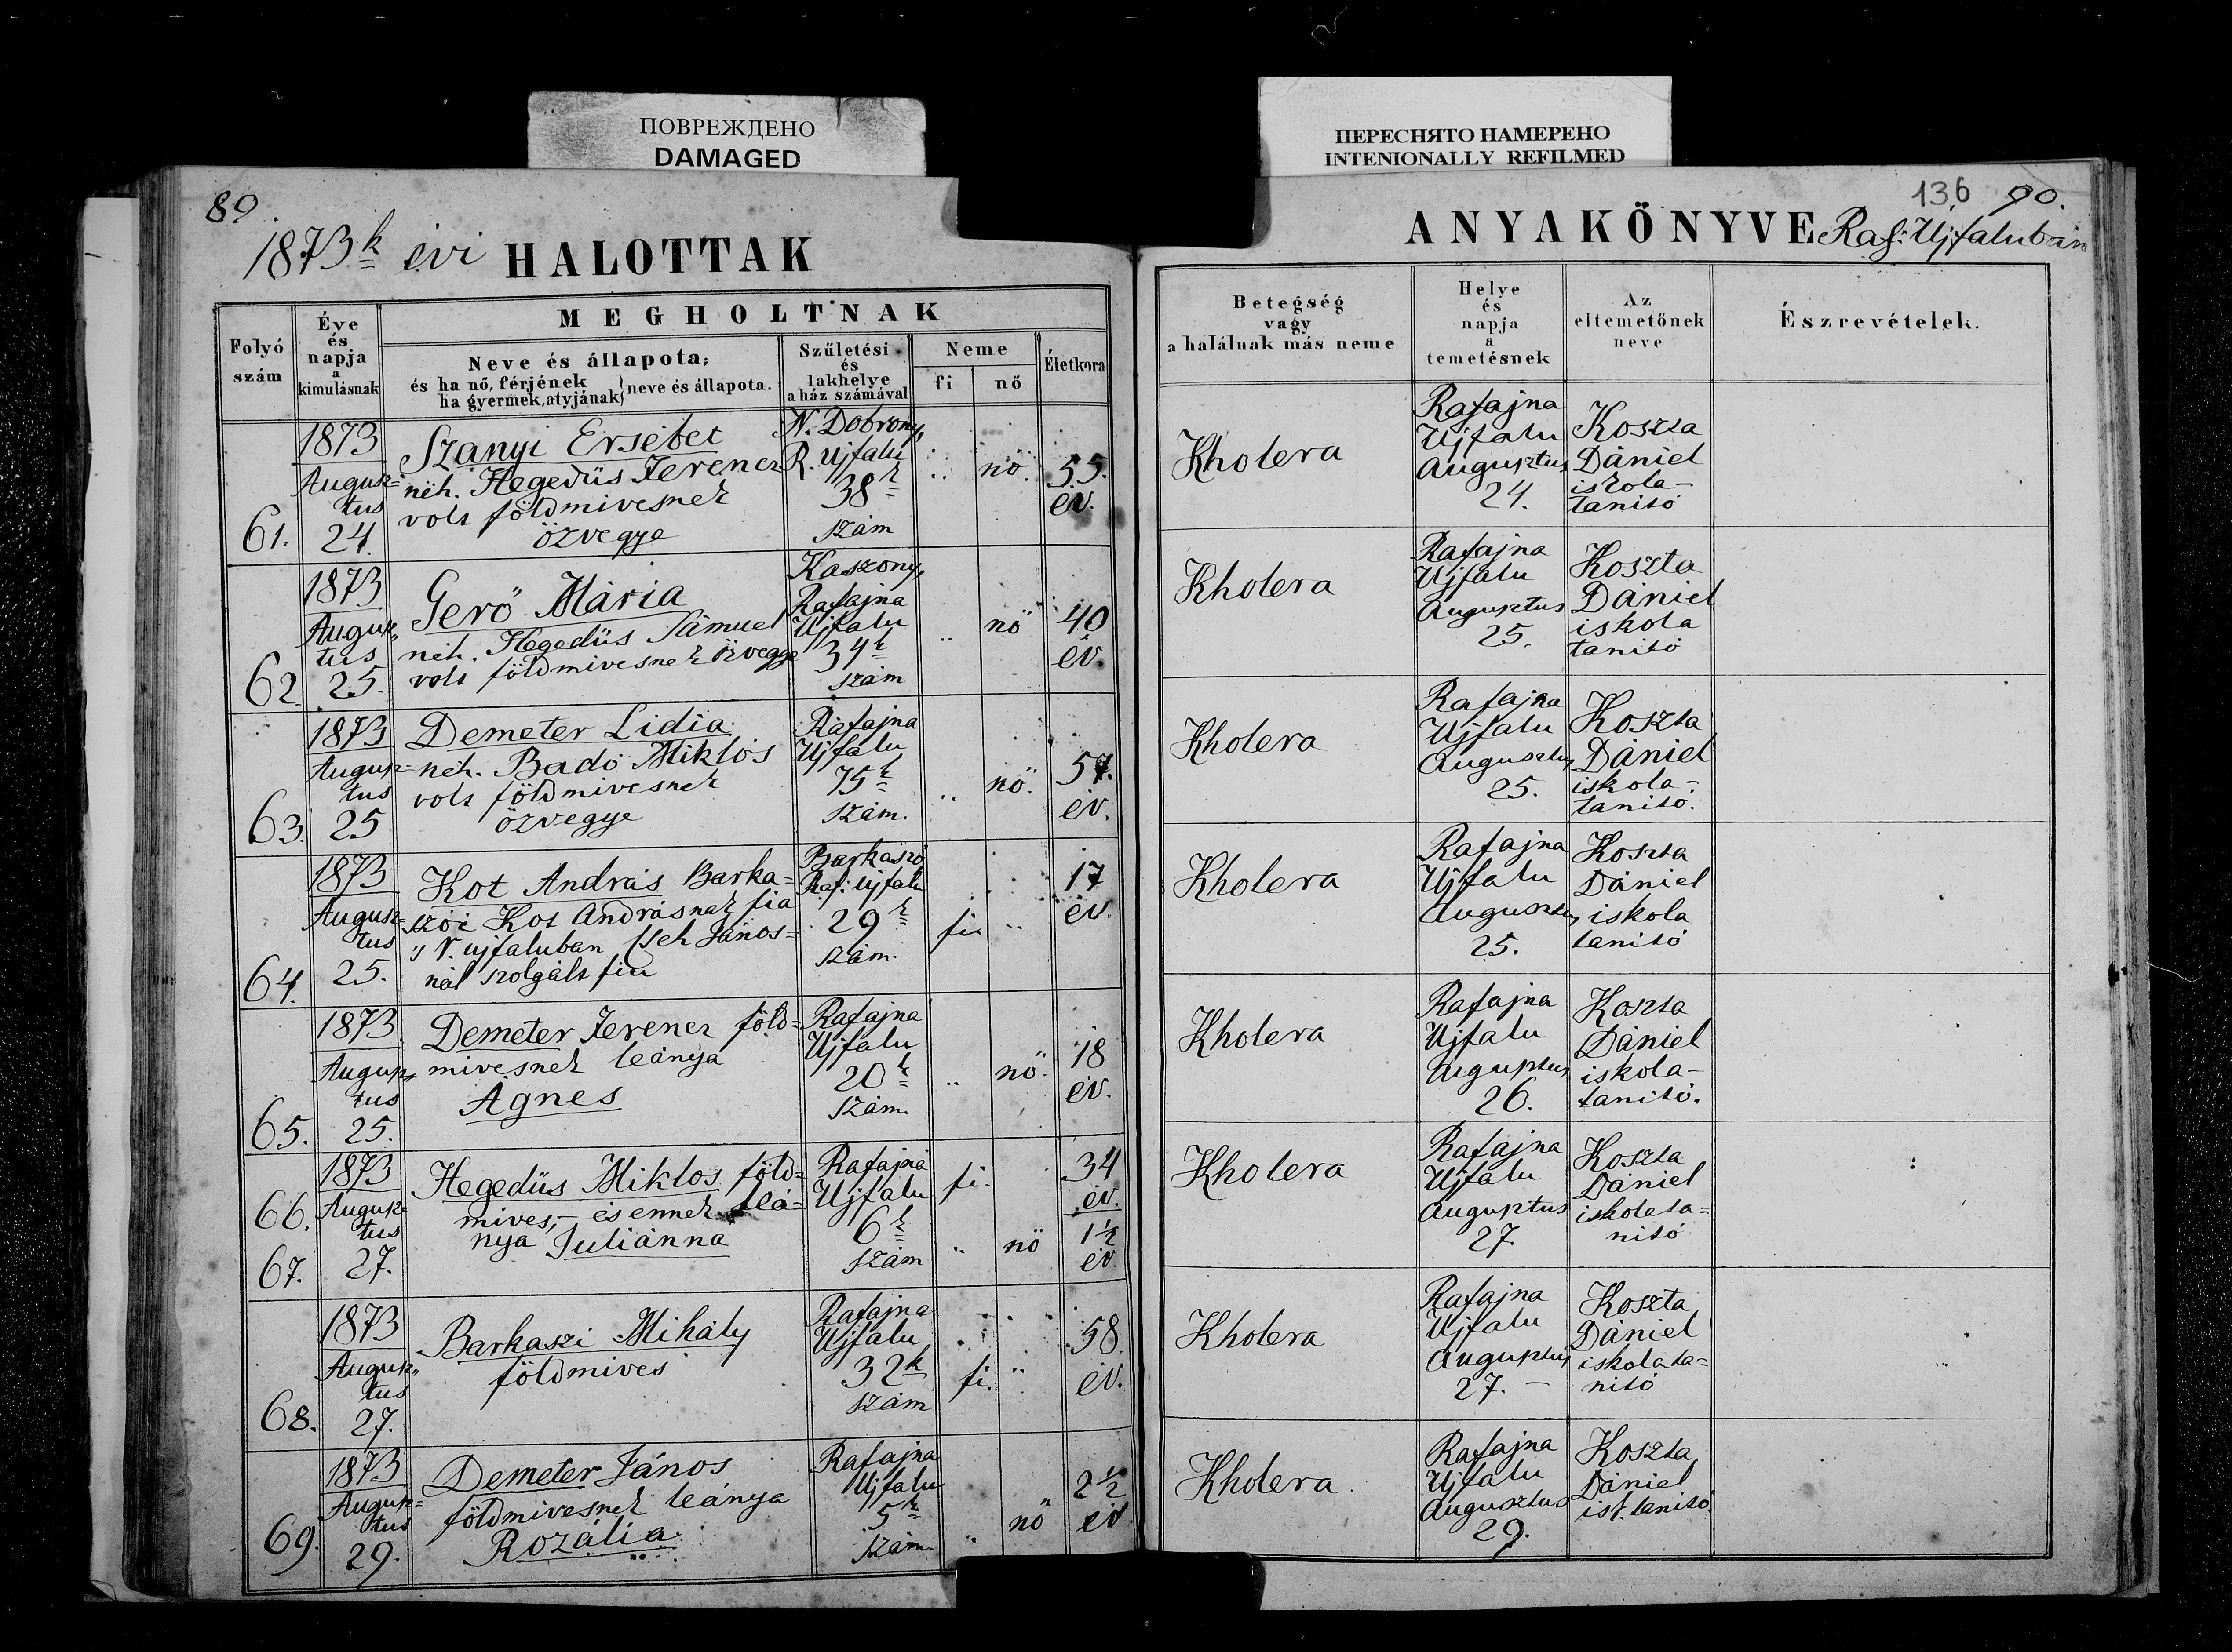 ПОВРЕЖДЕНО
DAMAGED
ПЕРЕСНЯТО НАМЕРЕНО
INTENIONALLY REFILMED
89
1873k évi HALOTTAK
Folyó szám
Éve és napja a kimulásnak
MEGHOLTNAK
Neve és állapota;
és ha nő, férjének
ha gyermek, atyjának
neve és állapota.
Születési és lakhelye a ház számával
Neme
fi
nő
Életkora
61.
1873
Augusz=
tus
24.
Szanyi Ersébet
néh. Hegedüs Ferencz
volt földmivesnek
özvegye
N. Dobrony,
R. Ujfalu
38k
szám
nö.
55.
év.
62
1873
Augusz„
tus
25.
Gerö Mária
néh. Hegedüs Sámuel
volt földmivesnek özvegye
Kaszony,
Rafajna
Ujfalu
34k
szám
nö
40
év.
63.
1873
Augusz=
tus
25
Demeter Lidia
néh. Badó Miklós
volt földmivesnek
özvegye
Rafajna
Ujfalu
75k
szám.
nö.
57.
év.
64.
1873
Augusz=
tus
25.
Kot András Barka=
szói Kot Andrásnak fia
ujfaluban János=
nál szolgált fiu
Barkaszó
Raf: Ujfalu
29k
szám.
fi.
17
év.
65.
1873
Augusz=
tus
25.
Demeter Ferencz föld=
mivesnek leánya
Ágnes
Rafajna
Ujfalu
20k
szám.
nö.
18
év.
66.
67.
1873
Augusz=
tus
27.
Hegedüs Miklos föld=
mives,- és ennek leá=
nya Juliánna
Rafajna
Ujfalu
6k
szám
fi.
nö
34
év.
1½
év.
68.
1873
Augusz„
tus
27.
Barkaszi Mihály
földmives
Rafajna
Ujfalu
32k
szám
fi.
58.
év.
69.
1873
Augusz=
tus
29.
Demeter János
földmivesnek leánya
Rozália
Rafajna
Ujfalu
5k
szám.
nö
2½
év
136 90.
ANYAKÖNYVE Raf: Ujfaluban
Betegség
vagy
a halálnak más neme
Helye
és
napja
a
temetésnek
Az
eltemetőnek
neve
Észrevételek.
Kholera
Rafajna
Ujfalu
Augusztus
24.
Koszta
Dániel
iskola-
tanitó
Kholera
Rafajna
Ujfalu
Augusztus
25.
Koszta
Dániel
iskola
tanitó
Kholera
Rafajna
Ujfalu
Augusztus
25.
Koszta
Dániel
iskola-
tanitó.
Kholera
Rafajna
Ujfalu
Augusztus
25.
Koszta
Dániel
iskola
tanitó
Kholera
Rafajna
Ujfalu
Augusztus
26.
Koszta
Dániel
iskola-
tanitó.
Kholera
Rafajna
Ujfalu
Augusztus
27.
Koszta
Dániel
iskolata=
nitó
Kholera
Rafajna
Ujfalu
Augusztus
27. -
Koszta
Dániel
iskolata=
nitó
Kholera.
Rafajna
Ujfalu
Augusztus
29.
Koszta
Dániel
isk. tanitó.